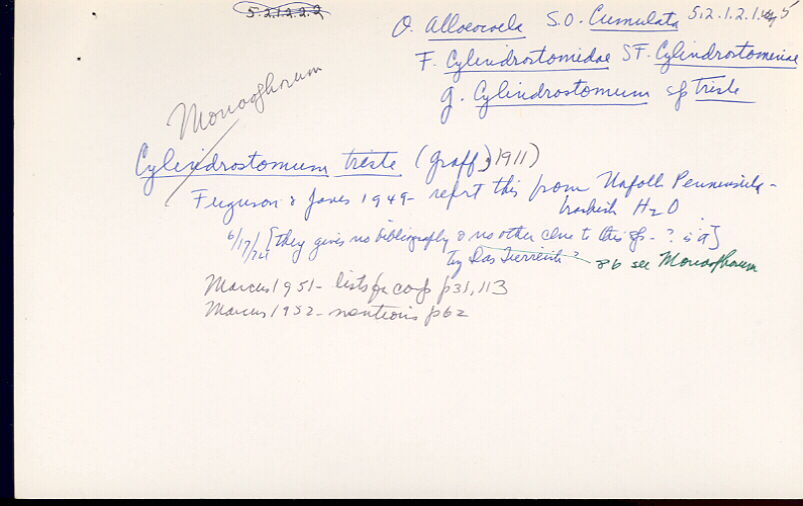 5.2.1.2.2.2
O. Alloeocoela S.O. Cumulata 5.2.1.2.1. 5
F. Cylindrostomidae SF. Cylindrostominae
g. Cylindrostomum sp triste
Monoophorum
Cylindrostomum triste (Graff, 1911)
Ferguson & Jones 1949- report this from Norfolk Penninsula-
brakish H2O
6/17/71 [they give no bibliography & no other clue to this sp- ? is it]
try Das Tierreich? - 86 see Monoophorum
Marcus 1951- lists for comp p31, 113
Marcus 1952- mentions p62